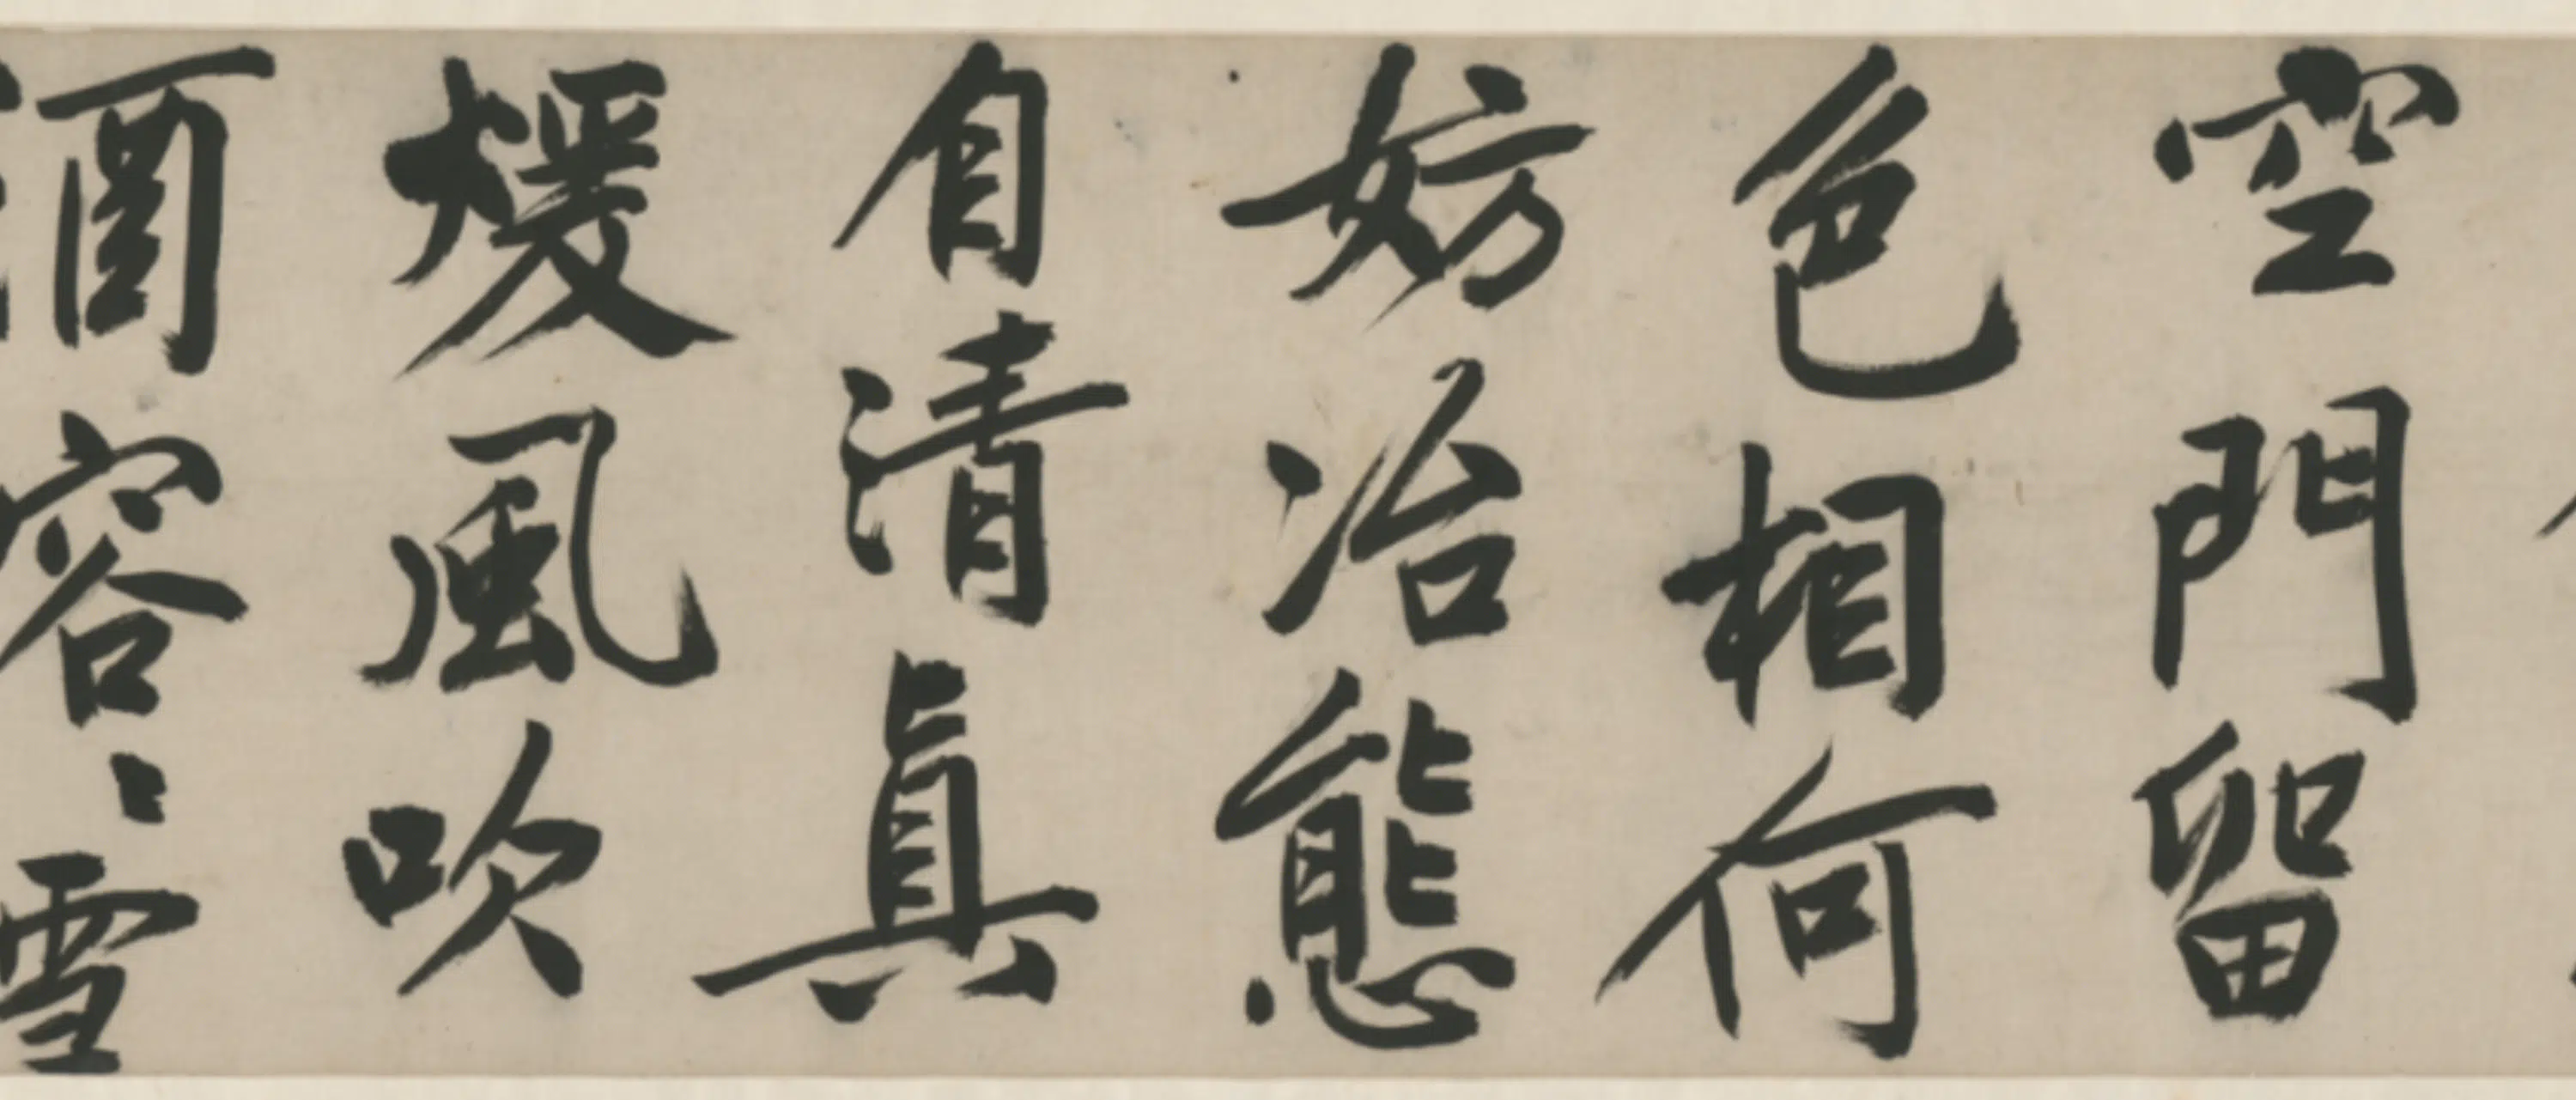 空門留
色相何
妨冶態
自清真
煖風吹
酒容〻雪